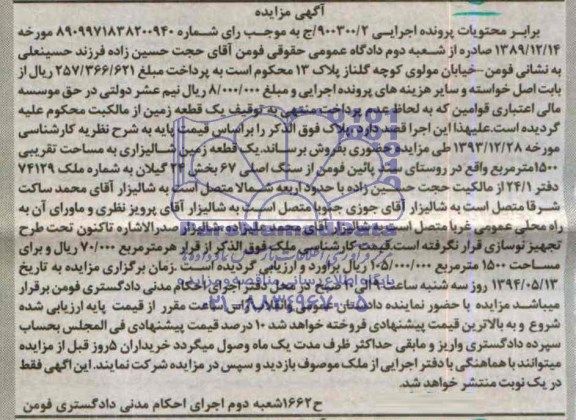 آگهی مزایده
برابر محتویات پرونده اجرایی ۹۰۰۳۰۰/۲/ج به موجب رای شماره ۸۹۰۹۹۷۱۸۳۸۲۰۰۹۴۰ مورخه
۱۳۸۹/۱۲/۱۴ صادره از شعبه دوم دادگاه عمومی حقوقی فومن آقای حجت حسین زاده فرزند حسینعلی
به نشانی فومن-خیابان مولوی کوچه گلناز پلاک ۱۳ محکوم است به پرداخت مبلغ ۲۵۷/۳۶۶/۶۲۱ ریال از
بابت اصل خواسته و سایر هزینه های پرونده اجرایی و مبلغ ۸/۰۰۰/۰۰۰ ریال نیم عشر دولتی در حق موسسه
مالی اعتباری قوامین که به لحاظ عدم پرداخت منتهی به توقیف یک قطعه زمین از مالکیت محکوم علیه
گردیده است.علیهذا این اجرا قصد دارد پلاک فوق الذکر را براساس قیمت پایه به شرح نظریه کارشناسی
مورخه ۱۳۹۳/۱۲/۲۸ طی مزایده حضوری بفروش برساند.یک قطعه زمین شالیزاری به مساحت تقریبی
۱۵۰۰مترمربع واقع در روستای سند پائین فومن از سنگ اصلی ۶۷ بخش ۲۳ گیلان به شماره ملک ۷۴۱۲۹
دفتر ۲۴/۱ از مالکیت حجت حسین زاده با حدود اربعه شمالا متصل است به شالیزار آقای محمد ساکت
شرقا متصل است به شالیزار آقای جوزی جنوبا متصل است به شالیزار آقای پرویز نظری و ماورای آن به
راه محلی عمومی غربا متصل است به شالیزار آقای محمد علیزاده شالیزار صدرالاشاره تاکنون تحت طرح
تجهیز نوسازی قرار نگرفته است.قیمت کارشناسی ملک فوق الذکر از قرار هرمترمربع ۷۰/۰۰۰ ریال و برای
مساحت ۱۵۰۰ مترمربع ۱۰۵/۰۰۰/۰۰۰ ریال برآورد و ارزیابی گردیده است .زمان برگزاری مزایده به تاریخ
۱۳۹۴/۰۵/۱۳ روز سه شنبه ساعت ۹ الی ۱۰ صبح در محل دفتر اجرای احکام مدنی دادگستری فومن برقرار
میباشد مزایده با حضور نماینده دادستان عمومی و انقلاب راس ساعت مقرر از قیمت پایه ارزیابی شده
شروع و به بالاترین قیمت پیشنهادی فروخته خواهد شد ۱۰ درصد قیمت پیشنهادی فی المجلس بحساب
سپرده دادگستری واریز و مابقی حداکثر ظرف مدت یک ماه وصول میگردد خریداران ۵روز قبل از مزایده
میتوانند با هماهنگی با دفتر اجرایی از ملک موصوف بازدید و سپس در مزایده شرکت نمایند. این آگهی فقط
در یک نوبت منتشر خواهد شد.
ح۱۶۶۲شعبه دوم اجرای احکام مدنی دادگستری فومن
پایگاه اطلاع رسانی مناقصه و مزایده
۰۲۱-۸۸۳۴۹۶۷۰-۵